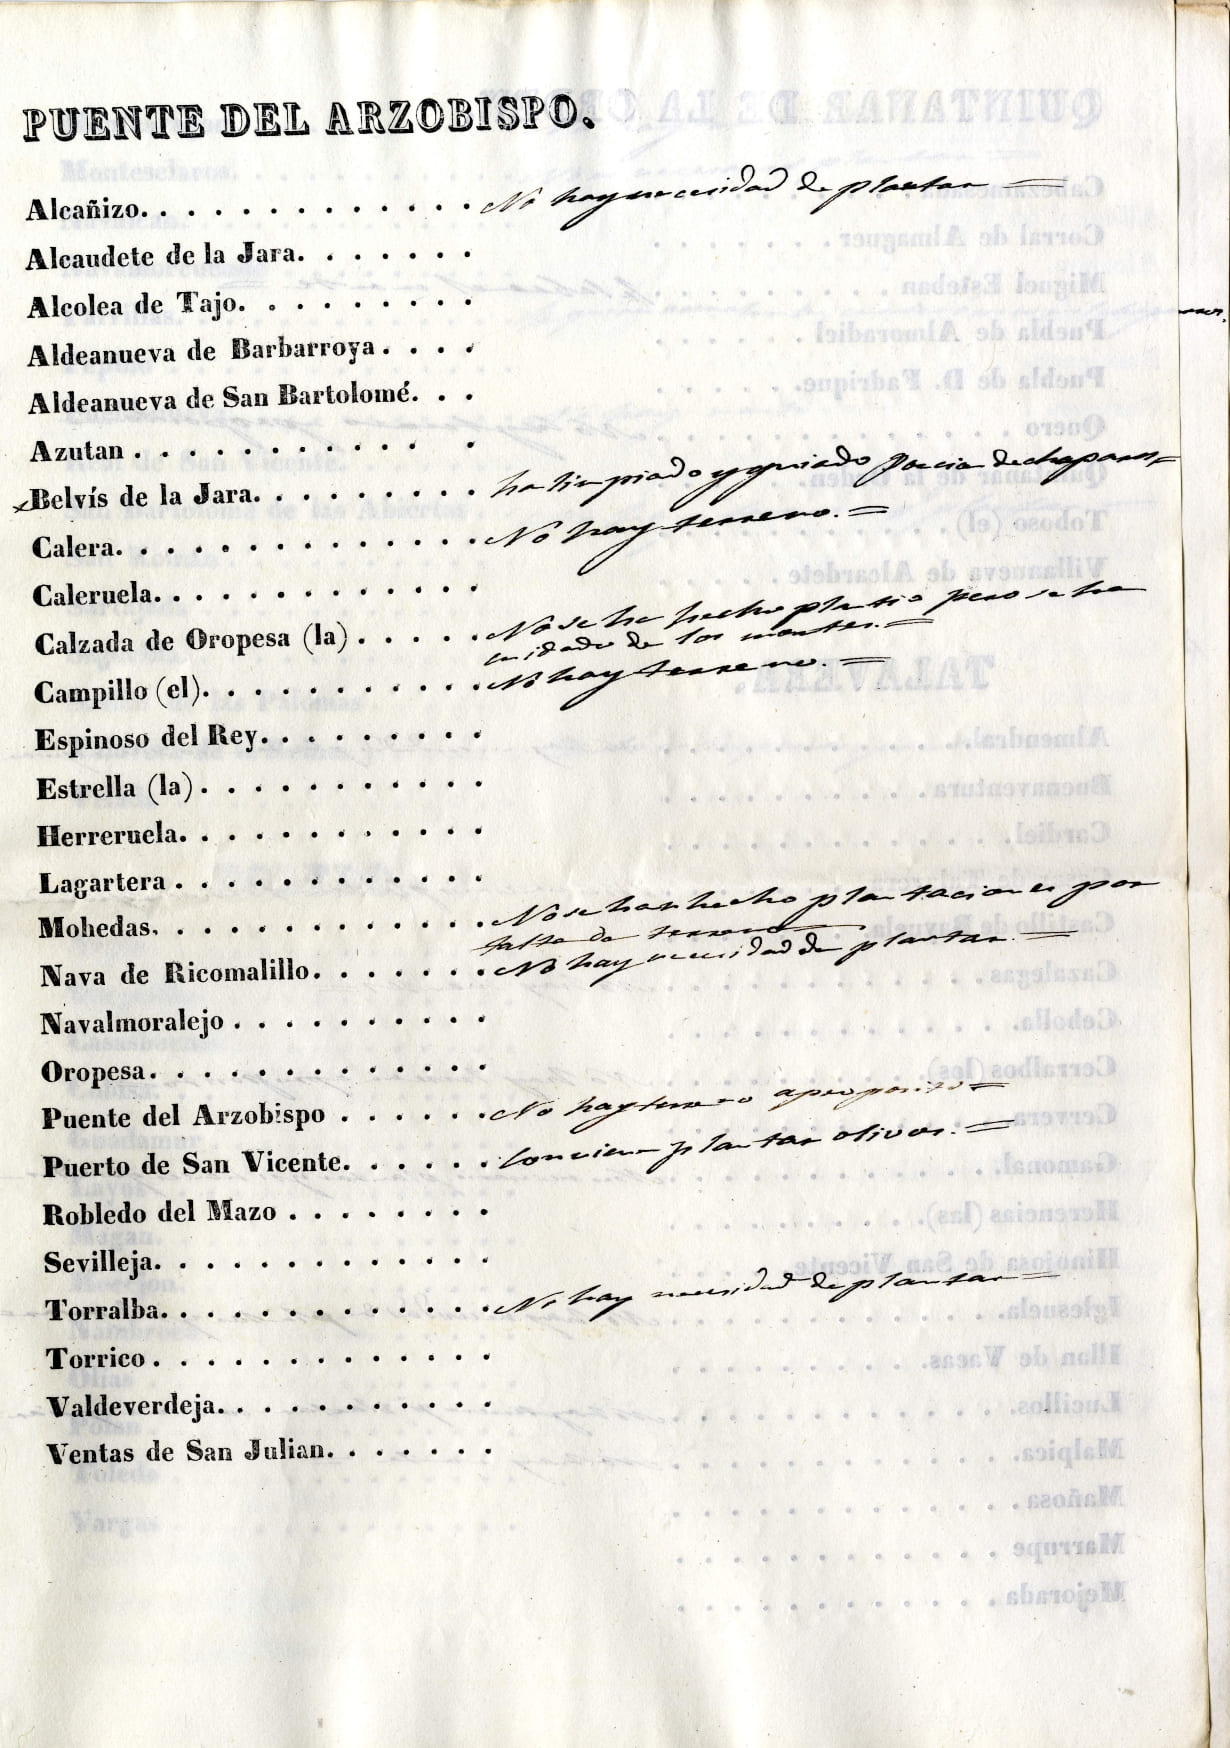 PUENTE DEL ARZOBISPO.
Alcañizo. . . . . . . . . . . . . No hay necesidad de plantar =
Alcaudete de la Jara. . . . . . . .
Alcolea de Tajo. . . . . . . . . .
Aldeanueva de Barbarroya . . . .
Aldeanueva de San Bartolomé. . .
Azutan . . . . . . . . . . . .
Belvís de la Jara. . . . . . . . . ha limpiado y guiado porcion de chaparros=
Calera. . . . . . . . . . . . . No hay terreno. =
Caleruela. . . . . . . . . . . .
Calzada de Oropesa (la) . . . . . No se ha hecho plantio pero se ha
cuidado de los montes. =
Campillo (el). . . . . . . . . . . No hay terreno. =
Espinoso del Rey. . . . . . . . .
Estrella (la). . . . . . . . . . .
Herreruela. . . . . . . . . . . .
Lagartera . . . . . . . . . . . .
Mohedas. . . . . . . . . . . . No se han hecho plantaciones por
falta de terreno
Nava de Ricomalillo. . . . . . . No hay necesidad de plantar. =
Navalmoralejo . . . . . . . . . .
Oropesa. . . . . . . . . . . . .
Puente del Arzobispo . . . . . . No hay terreno aproposito =
Puerto de San Vicente. . . . . . Conviene plantar olivos. =
Robledo del Mazo . . . . . . . .
Sevilleja. . . . . . . . . . . . .
Torralba. . . . . . . . . . . . No hay necesidad de plantar =
Torrico . . . . . . . . . . . . .
Valdeverdeja. . . . . . . . . . .
Ventas de San Julian. . . . . . .